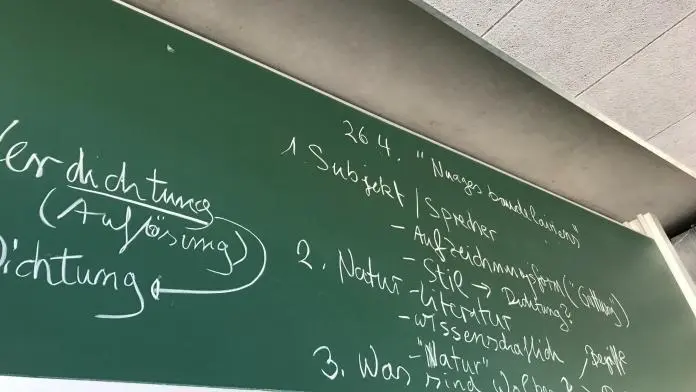 Verdichtung
(Auflösung)
Dichtung
26.4. "Nuages baudelairiens"
1. Subjekt / Sprecher
- Aufzeichnungsform ("Gattung")
- Stil → Dichtung?
2. Natur - Literatur
- wissenschaftlich Begriffe
- "Natur"
3. Was sind Wolken?